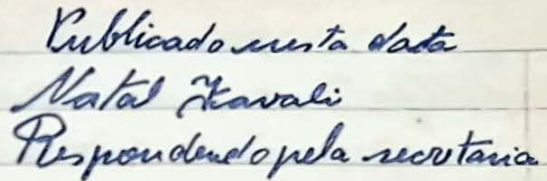 Publicado nesta data
Natal Favali
Respondendo pela secretaria